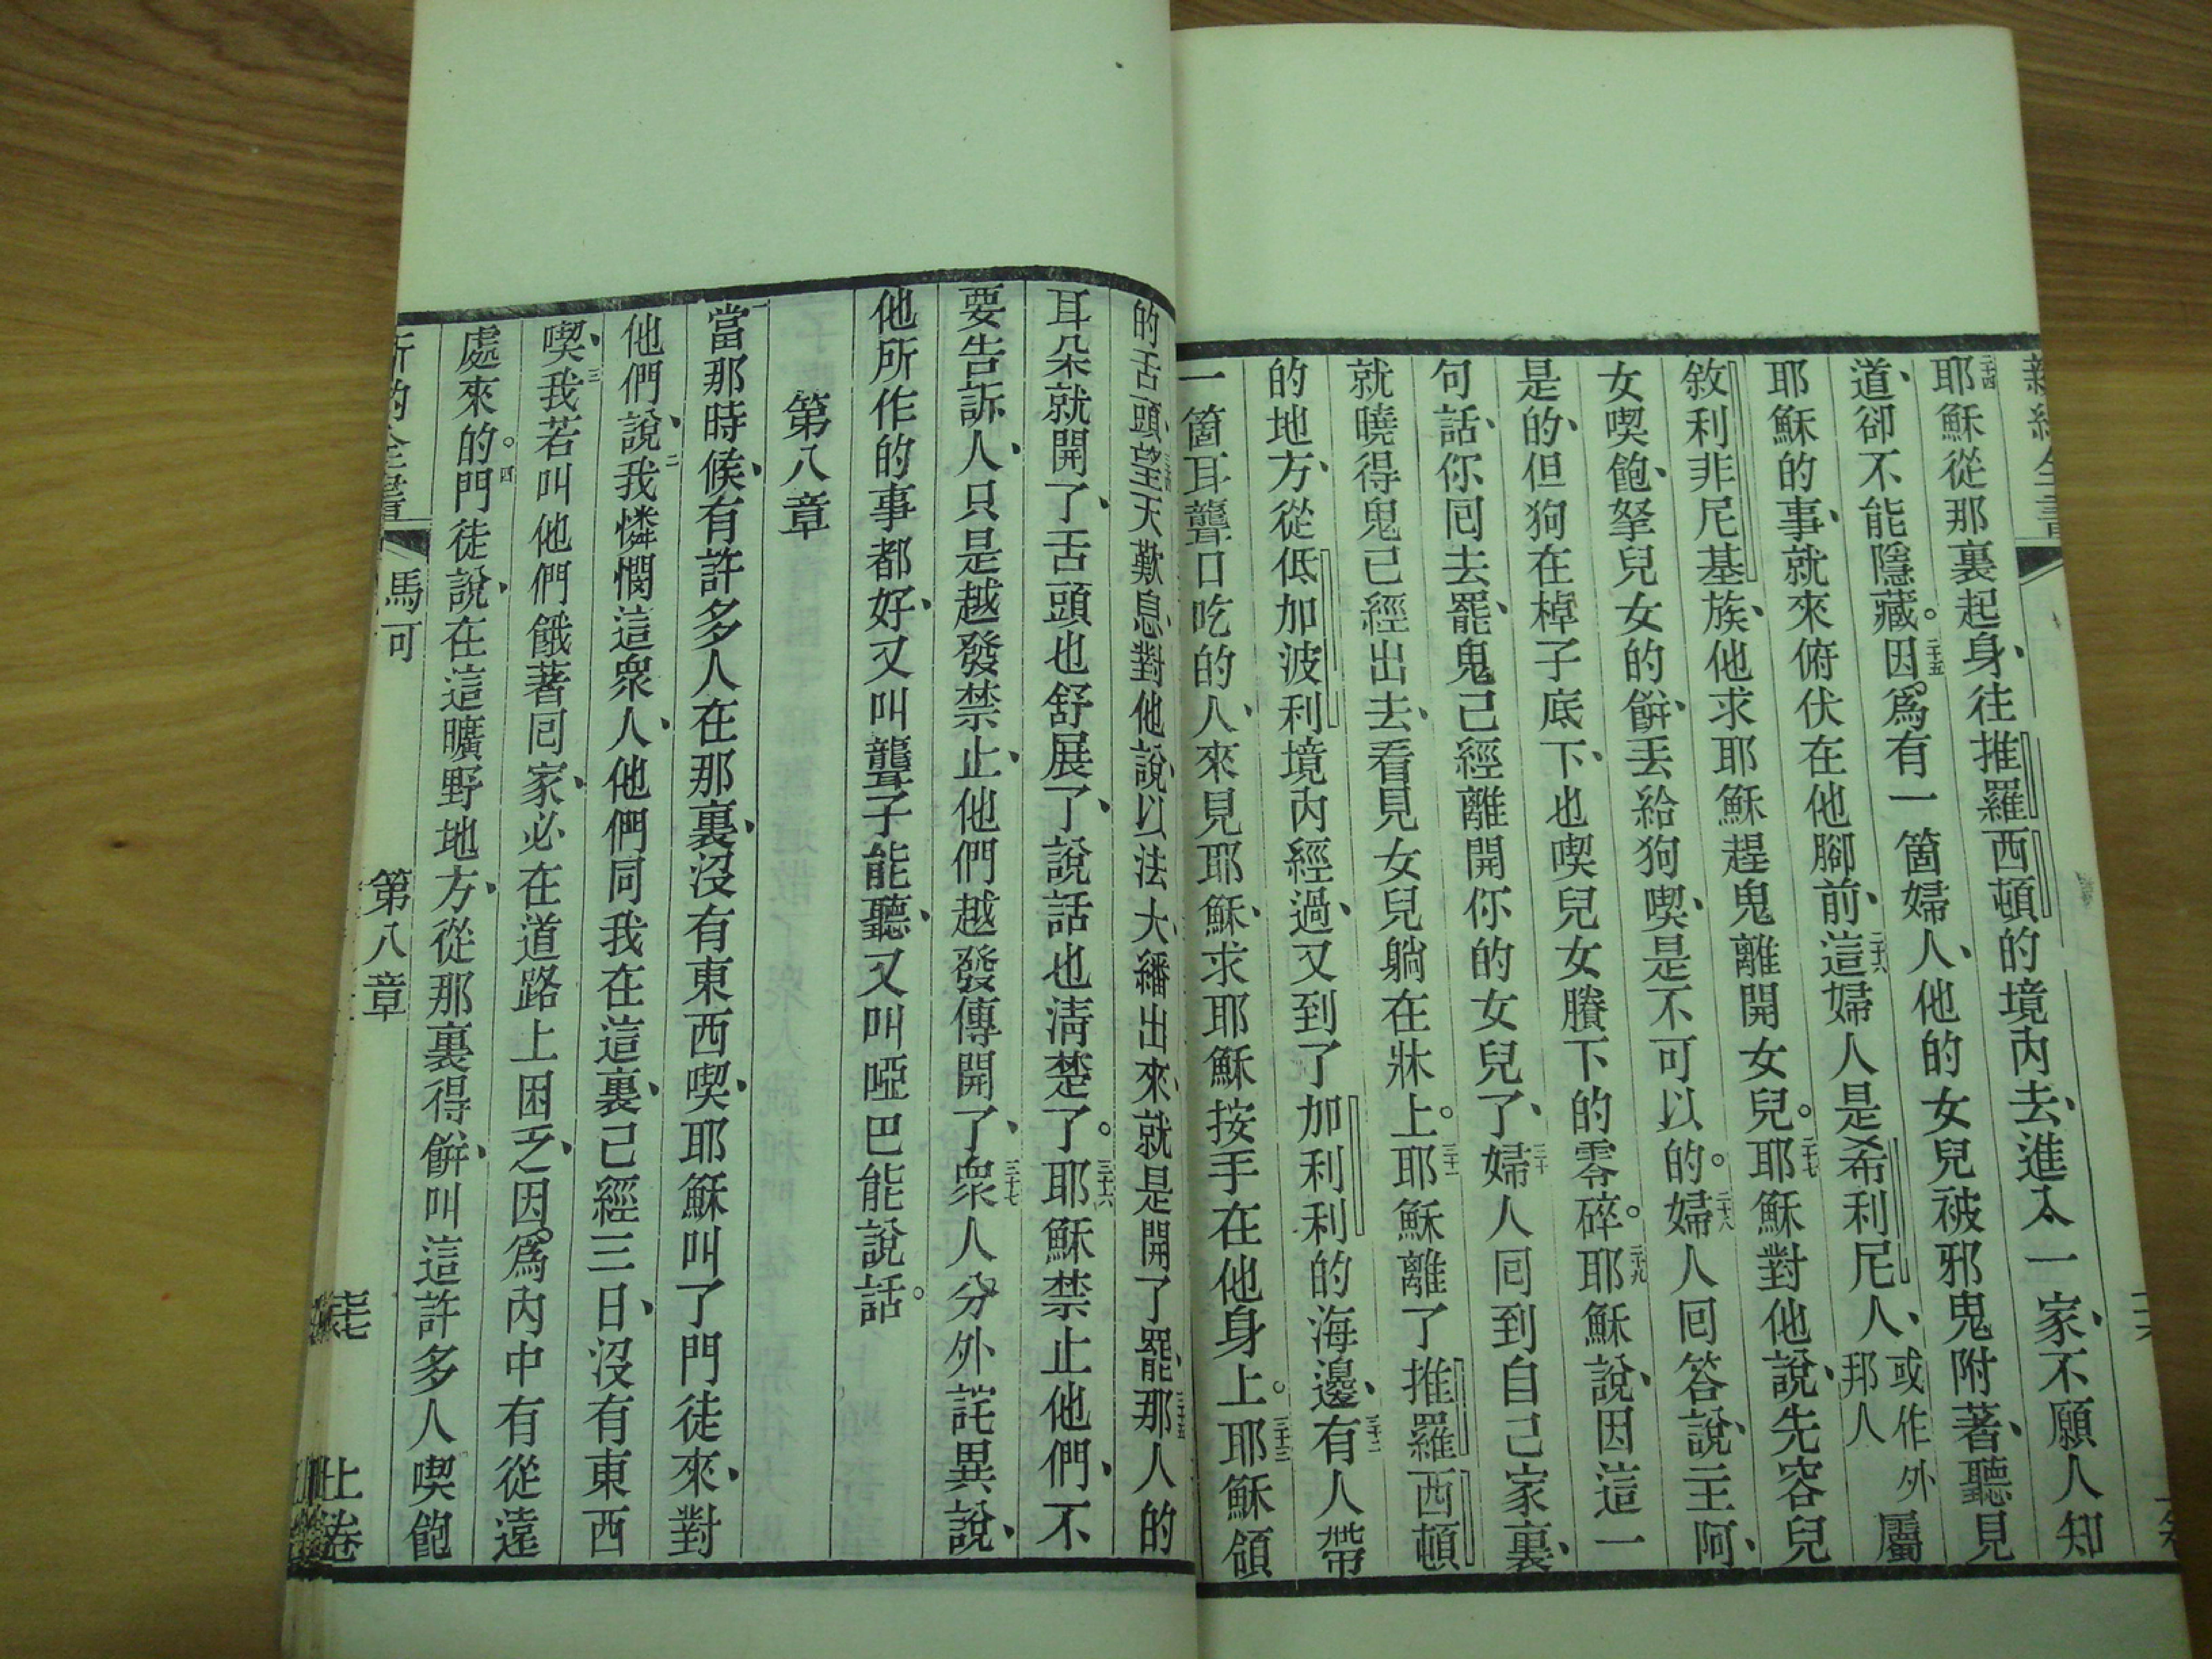 耶穌從那裏起身、往推羅西頓的境內去、進入一家、不願人知
道、卻不能隱藏。因爲有一箇婦人、他的女兒被邪鬼附著、聽見
耶穌的事、就來俯伏在他腳前、這婦人是希利尼人、或作外邦人屬
敘利非尼基族、他求耶穌趕鬼離開女兒。耶穌對他說、先容兒
女喫飽、拏兒女的餅、丟給狗喫、是不可以的。婦人回答說、主阿、
是的、但狗在棹子底下、也喫兒女賸下的零碎。耶穌說、因這一
句話、你回去罷、鬼已經離開你的女兒了、婦人回到自己家裏、
就曉得鬼已經出去、看見女兒躺在牀上。耶穌離了推羅西頓
的地方、從低加波利境內經過、又到了加利利的海邊、有人帶
一箇耳聾口吃的人、來見耶穌、求耶穌按手在他身上。耶穌領
的舌頭、望天歎息、對他說、以法大、繙出來、就是開了罷、那人的
耳朵就開了、舌頭也舒展了、說話也淸楚了。耶穌禁止他們、不
要告訴人、只是越發禁止、他們越發傳開了、衆人分外詫異說、
他所作的事都好、又叫聾子能聽、又叫啞巴能說話。
第八章
當那時候、有許多人在那裏、沒有東西喫、耶穌叫了門徒來、對
他們說、我憐憫這衆人、他們同我在這裏、已經三日、沒有東西
喫、我若叫他們餓著回家、必在道路上困乏、因爲內中有從遠
處來的。門徒說、在這曠野地方、從那裏得餅、叫這許多人喫飽
馬可 第八章 上卷